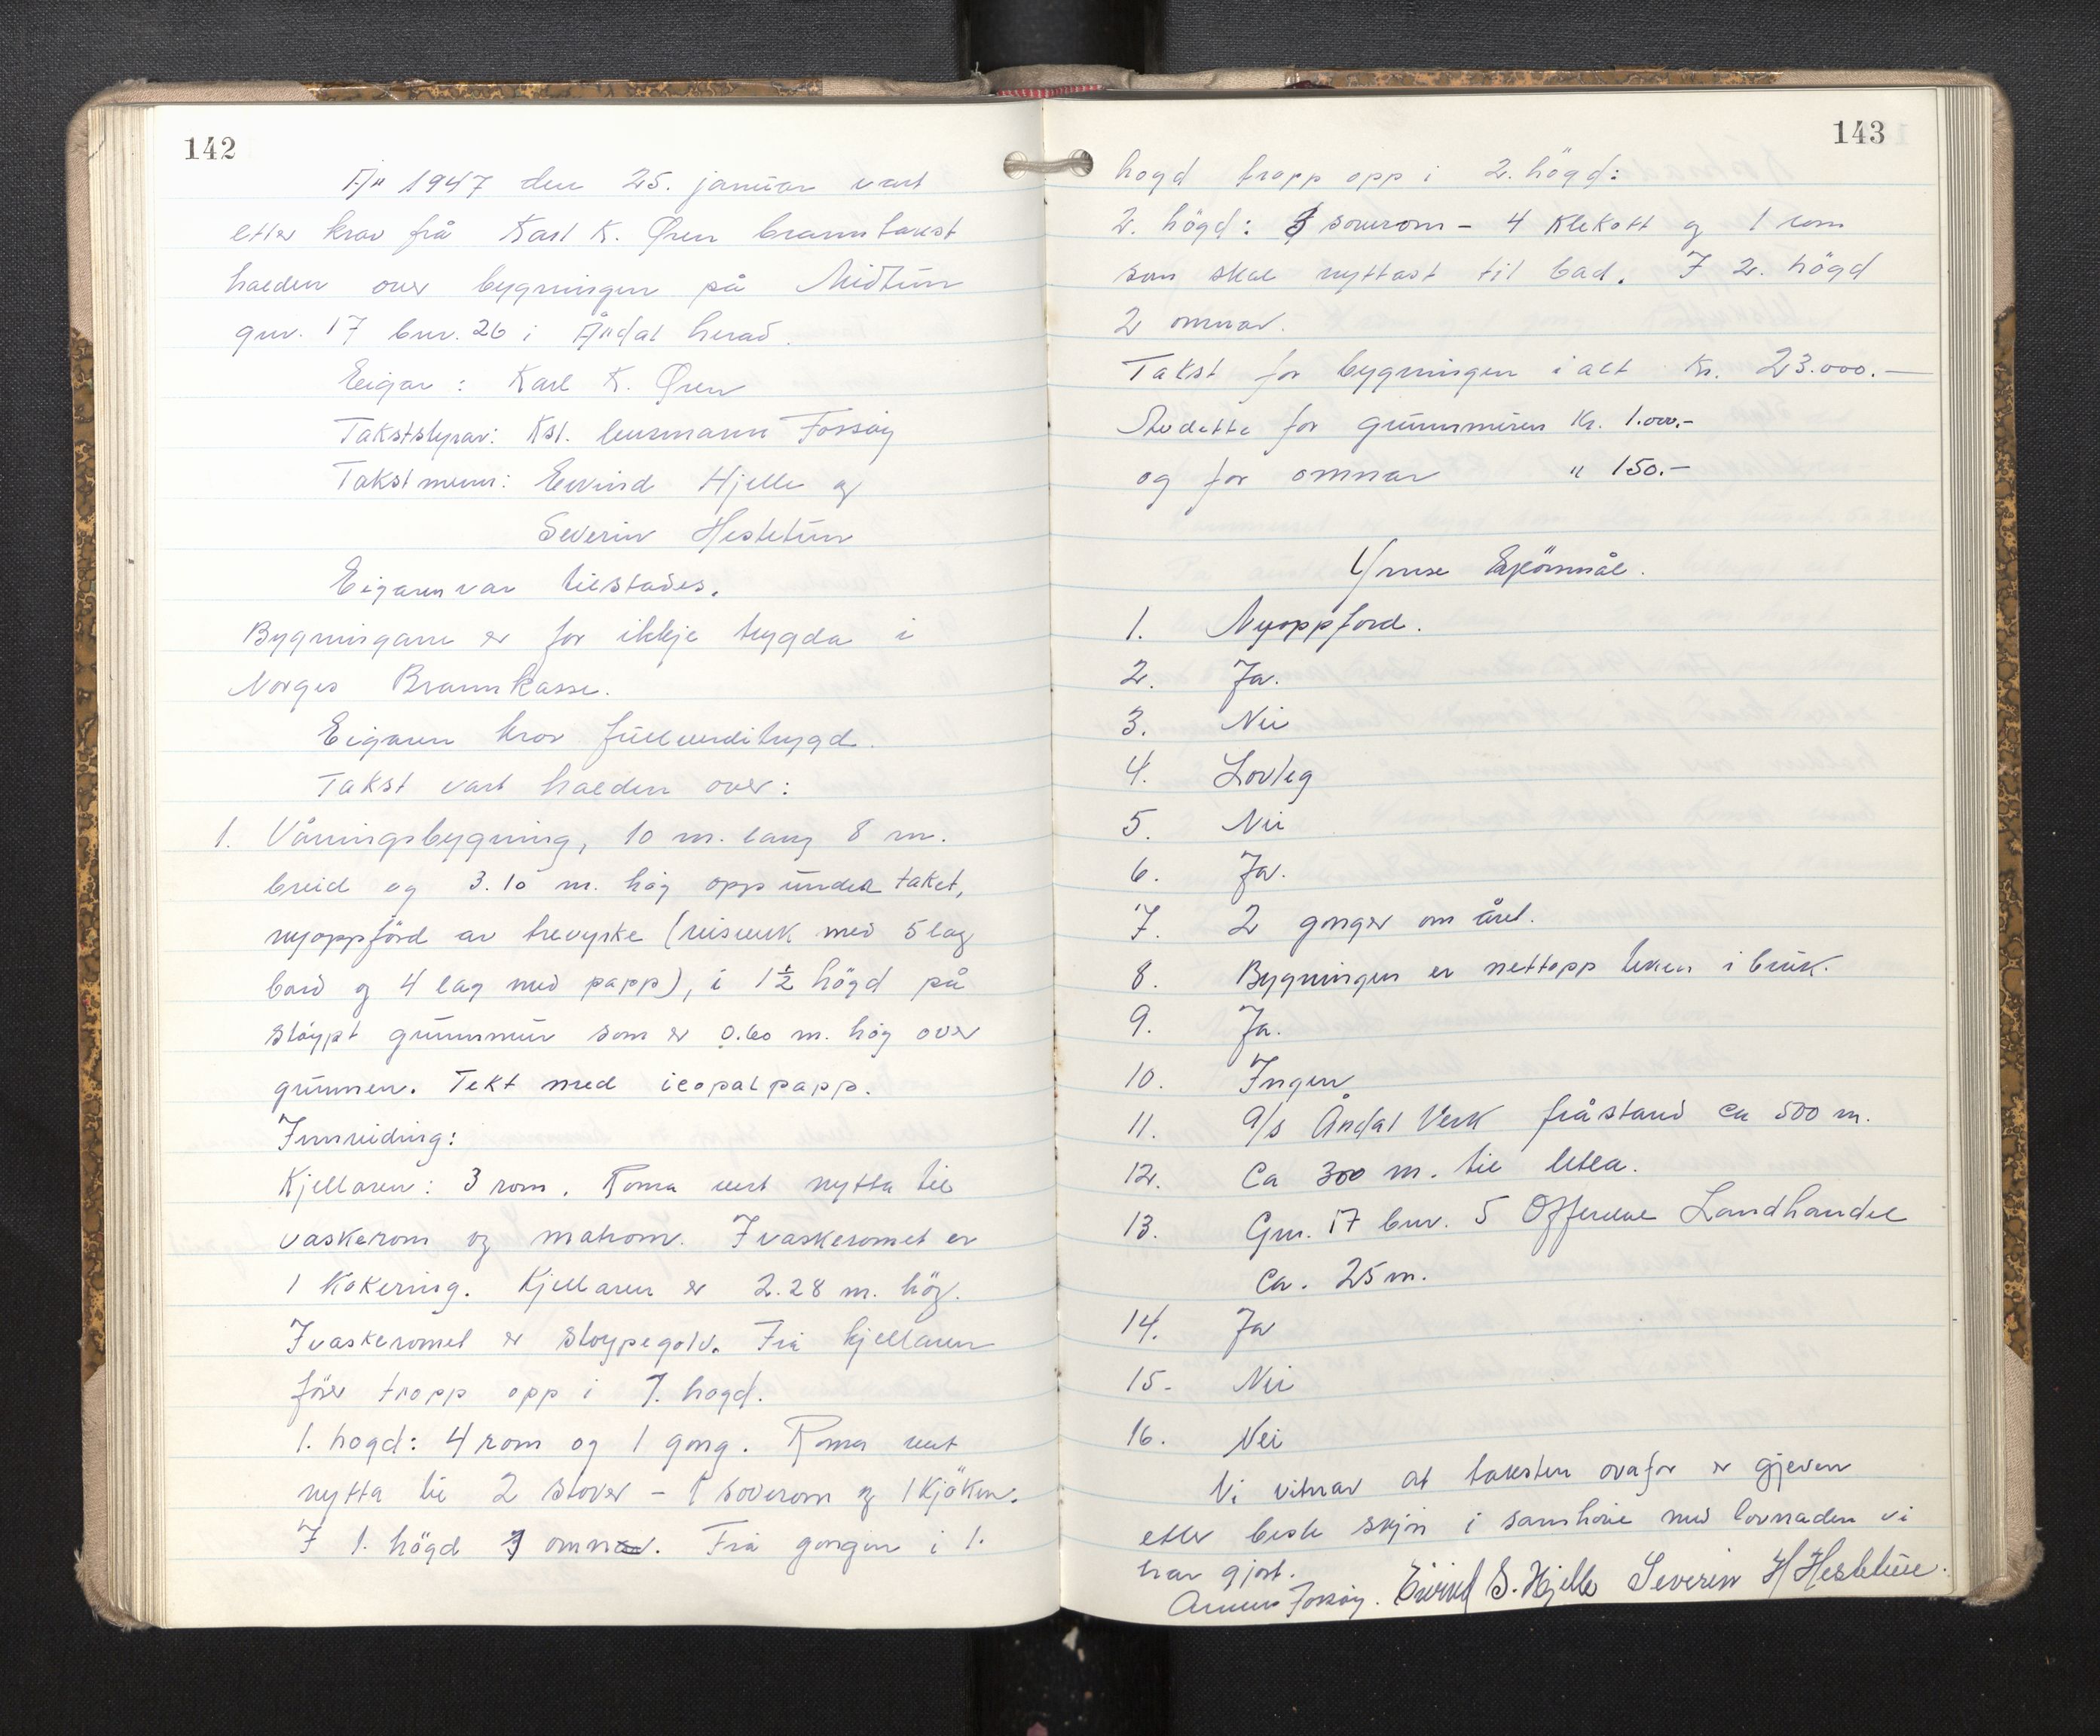 142
År 1947 den 25. januar vart
etter krav frå Karl K. Øren branntakst
halden over bygningen på Midtun
gnr. 17 bnr. 26 i Årdal herad.
Eigar: Karl K. Øren
Takststyrar: Kst. lensmann Forsøy
Takstmenn: Eivind Hjelle og
Severin Hestetun
Eigaren var tilstades.
Bygningane er før ikkje trygda i
Norges Brannkasse.
Eigaren krov fullverditrygd.
Takst vart halden over:
1. Våningsbygning, 10 m. lang 8 m.
breid og 3.10 m. høg opp under taket,
nyoppförd av trevyrke (reisverk med 5 lag
bord og 4 lag med papp), i 1½ högd på
støypt grunnmur som er 0.60 m. høg over
grunnen. Tekt med icopalpapp.
Innreiding:
Kjellaren: 3 rom. Roma vert nytta til
vaskerom og matrom. I vaskeromet er
1 kokering. Kjellaren er 2.28 m. hög.
I vaskeromet er støypegolv. Frå kjellaren
förer tropp opp i 1. hogd.
1. hogd: 4 rom og 1 gong. Roma vert
nytta til 2 stover – 1 soverom og 1 kjöken.
I 1. högd 1 omn. Frå gongen i 1.
143
hogd tropp opp i 2. högd:
2. högd: soverom – 4 klekott og 1 rom
som skal nyttast til bad. I 2. högd
2 omnar.
Takst for bygningen i alt Kr. 23.000.—
Av dette for grunnmuren Kr. 1.000.-
og for omnar " 150.—
Ymse Spörsmål.
1. Nyoppförd.
2. Ja.
3. Nei
4. Lovleg
5. Nei
6. Ja.
7. 2 gonger om året.
8. Bygningen er nettopp teken i bruk.
9. Ja.
10. Ingen
11. A/s Årdal Verk fråstand ca 500 m.
12. Ca 300 m. til elva.
13. Gnr. 17 bnr. 5 Offerdal Landhandel
Ca. 25 m.
14. Ja
15. Nei
16. Nei
Vi vitnar at taksten ovafor er gjeven
etter beste skjøn i samhøve med lovnaden vi
har gjort.
Forsøy. Eivind S. Hjelle Severin H Hestetun.